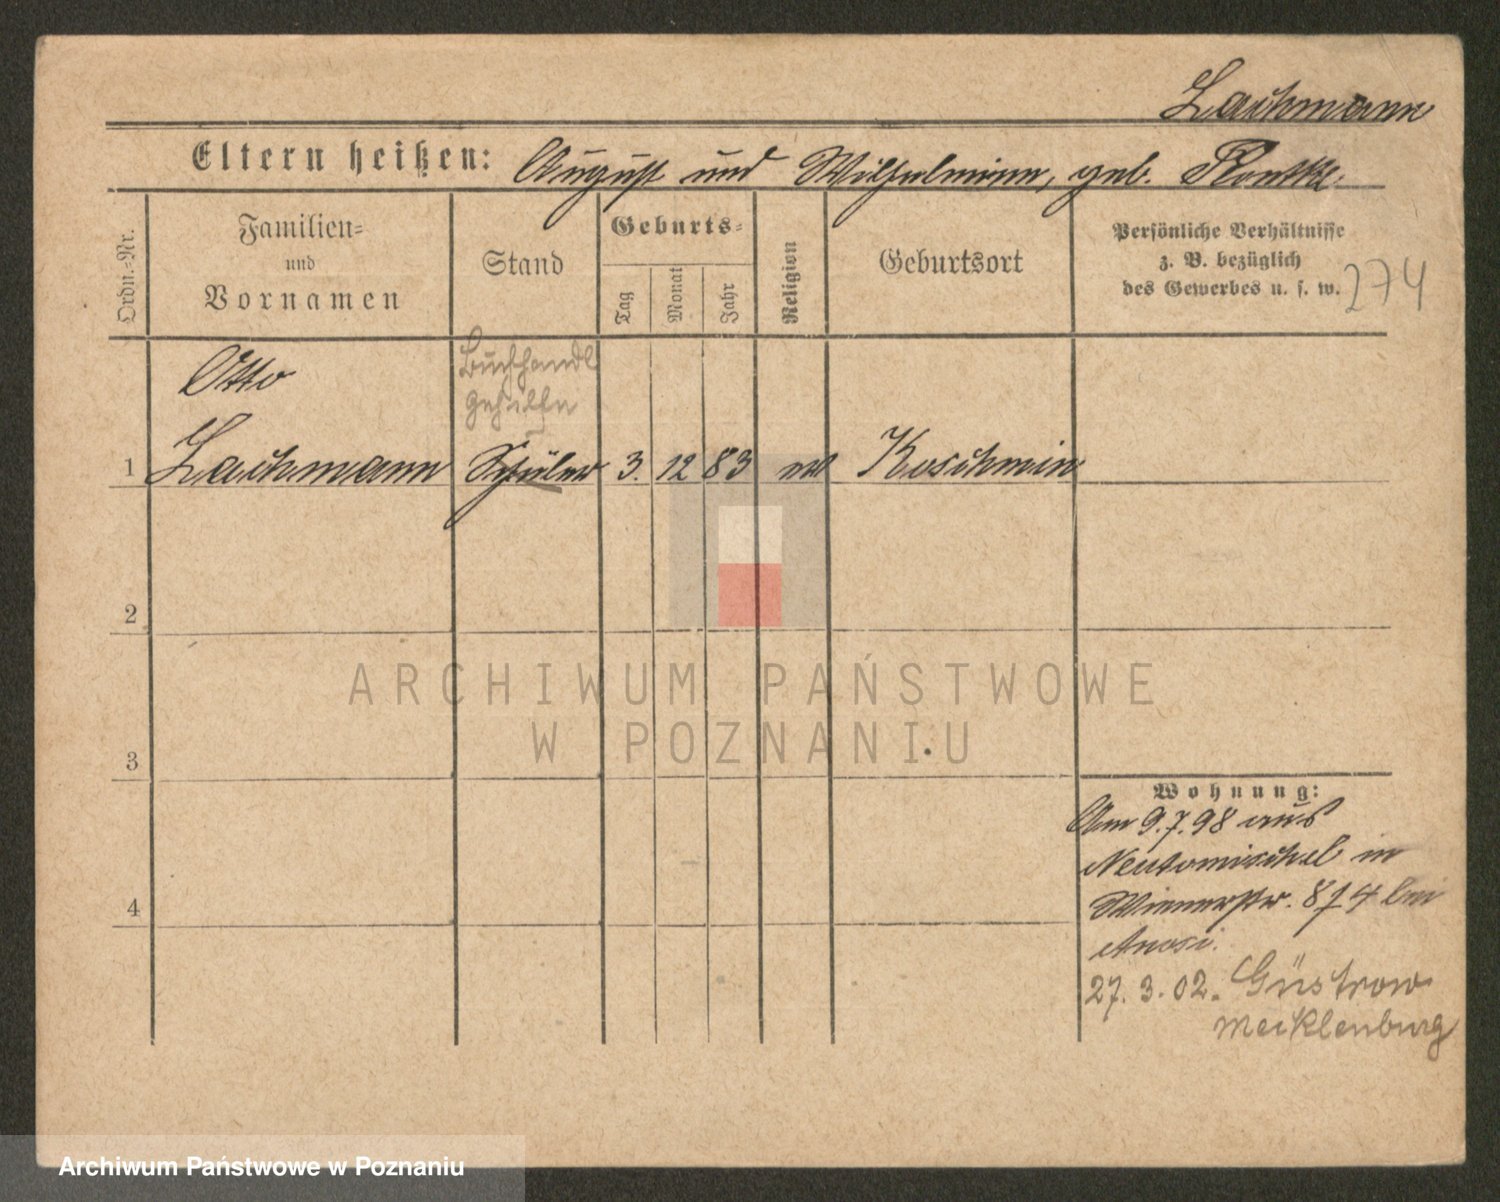 Lachmann
Eltern heißen: August und Wilhelmine, geb.
Ordn.-Nr.
Familien-
und
Vornamen
Stand
Geburts-
Tag
Monat
Jahr
Religion
Geburtsort
Persönliche Verhältnisse
z. B. bezüglich
des Gewerbes u. s. w.
274
Otto
Buchhandl
gehülfe
1 Lachmann Schüler 3. 12 83 ev Koschmin
2
ARCHIWUM PAŃSTWOWE
W POZNANIU
3
Wohnung:
Am 9.7.98 aus
Neutomischel in
Wienerstr. 8 bei
4
27. 3. 02. Güstrow
Mecklenburg
Archiwum Państwowe w Poznaniu